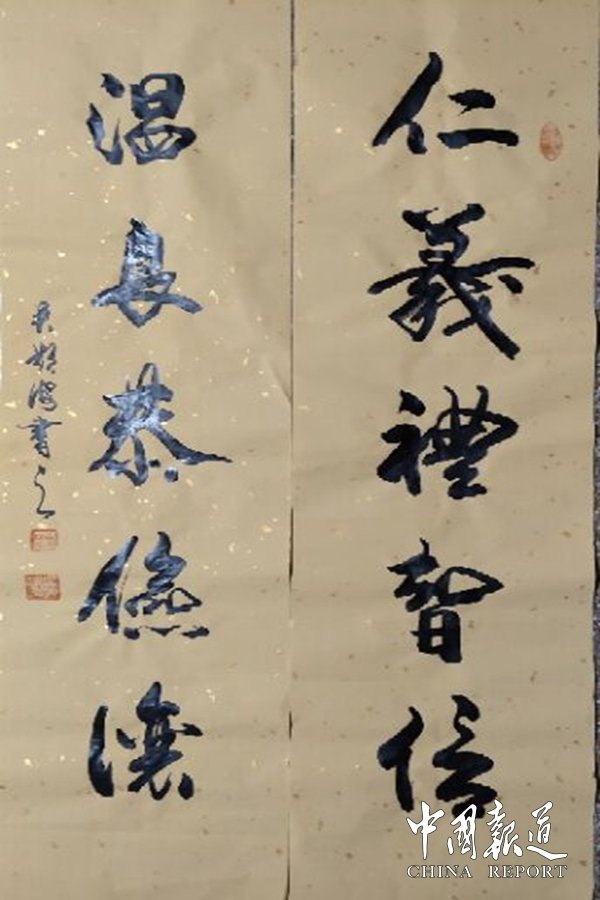 仁義禮智信
温良恭儉讓
書之
中國報道
CHINA REPORT